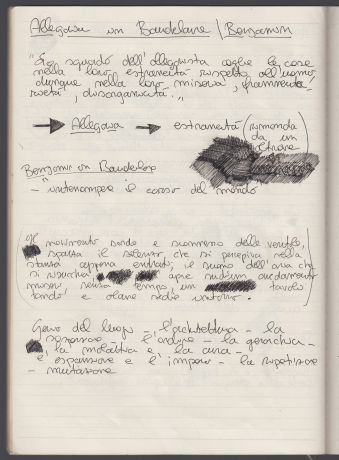 Allegoria in Baudelaire / Benjamin
"Lo sguardo dell'allegorista coglie le cose
nella loro estraneità rispetto all'uomo
dunque nella loro miseria, frammenta-
rietà, disorganicità."
→ Allegoria → estraneità (rimanda
da un
oltrare
Benjamin in Baudelaire
- "interrompere il corso del mondo
Il movimento sordo e sommerso delle ventole,
spacca il silenzio, che si percepiva nella
stanza appena entrati, il suono dell'aria che
si
senza tempo, un tavolo
tondo e alcune sedie intorno.
Genio del luogo - l'architettura - la
- l'ordine - la gerarchia -
la malattia e la cura -
e espansione e l'impero - la ripetizione
- mutazione